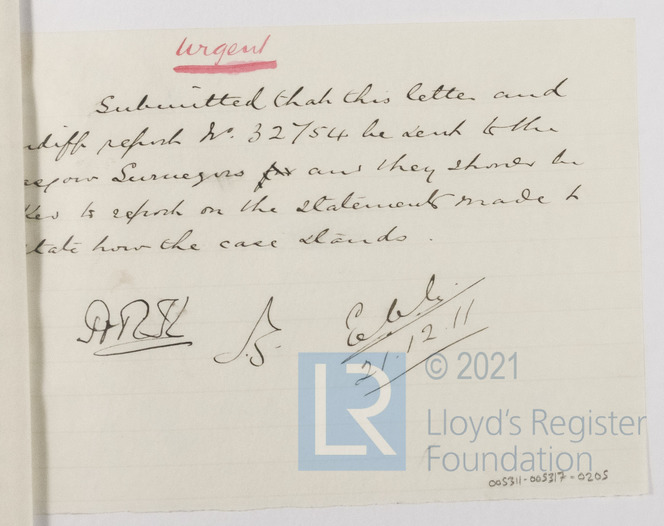 Urgent
Submitted that this letter and
diff report No. 32754 be sent to the
Surveyors and they should be
to report on the statements made to
state how the case stands.
ARK
J.S.
21.12.11
© 2021
LR
Lloyd's Register
Foundation
005311-005317-0205